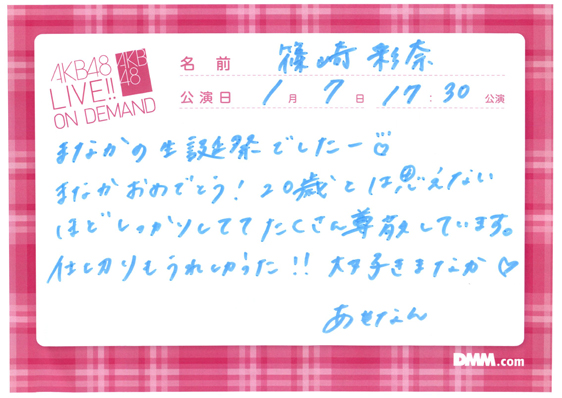 AKB48
LIVE!!
ON DEMAND
AKB
48
名前 篠崎彩奈
公演日 1月7日 17:30公演
まなかの生誕祭でしたー♡
まなかおめでとう！20歳とは思えない
ほどしっかりしててたくさん尊敬しています。
仕切りもうれしかった!! 大好きまなか♡
あやなん
DMM.com